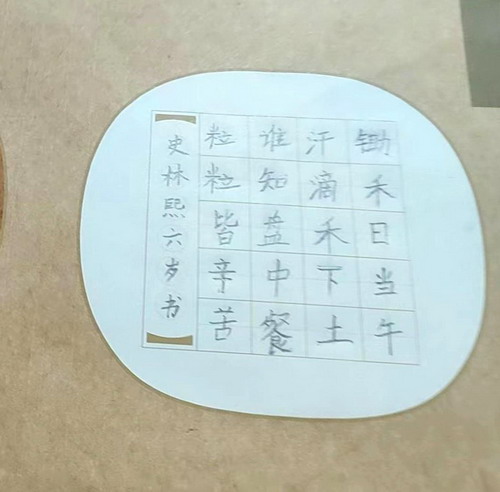 锄禾日当午
汗滴禾下土
谁知盘中餐
粒粒皆辛苦
史林熙六岁书